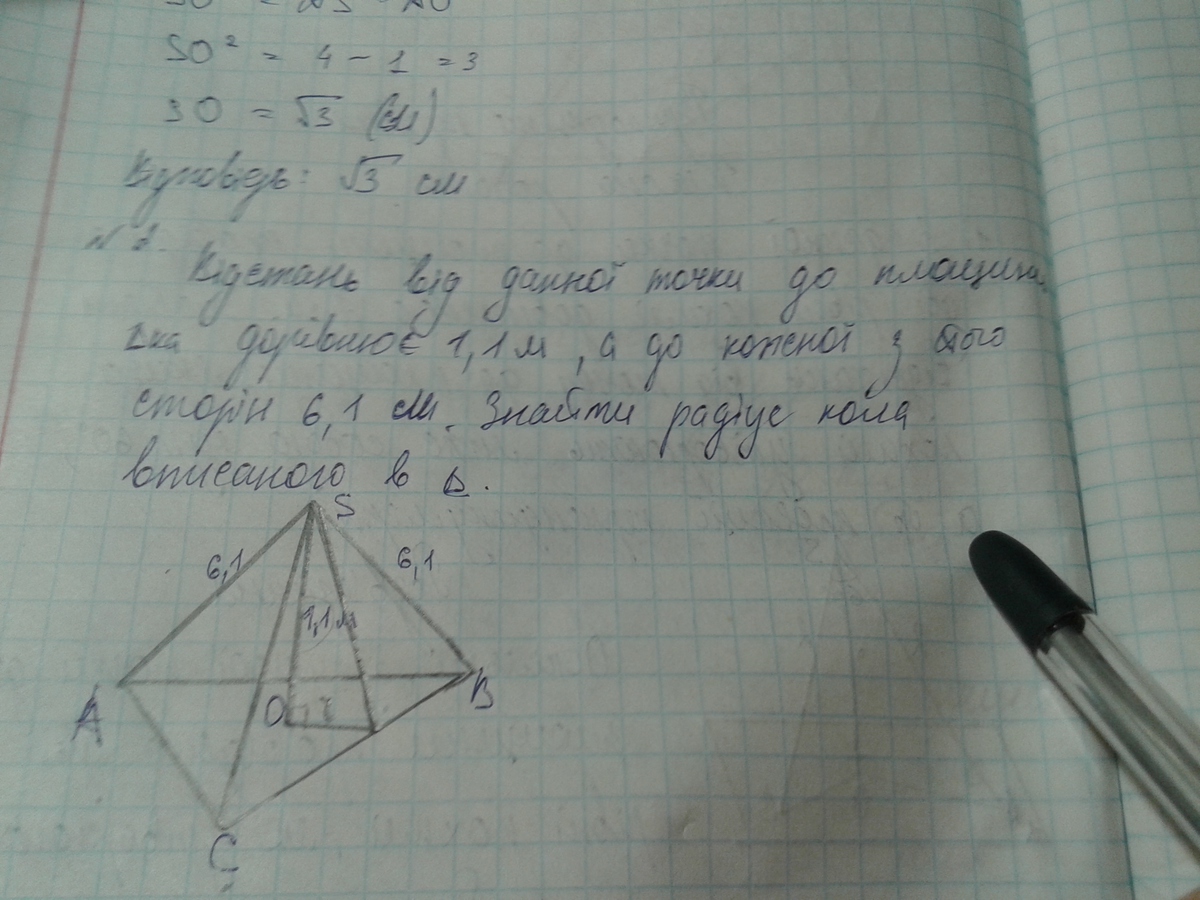 SO² = 4 - 1 = 3
SO = √3 (см)
Відповідь: √3 см
Відстань від данної точки до площини
дорівнює 1,1 м, а до кожної з його
сторін 6,1 см. Знайти радіус кола
вписаного в Δ.
S
6,1
6,1
1,1 м
A
O
B
C